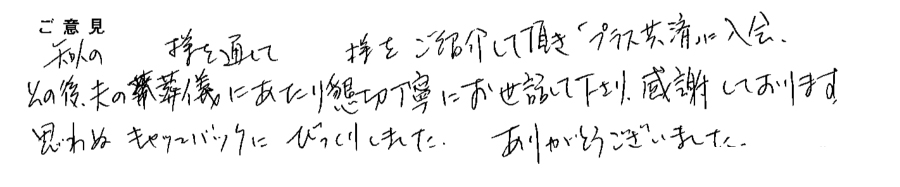 ご意見
知人の 様を通して 様をご紹介して頂き「プラス共済」に入会、
その後、夫の葬儀にあたり懇切丁寧にお世話して下さり、感謝しております
思わぬキャッシュバックにびっくりしました。 ありがとうございました。